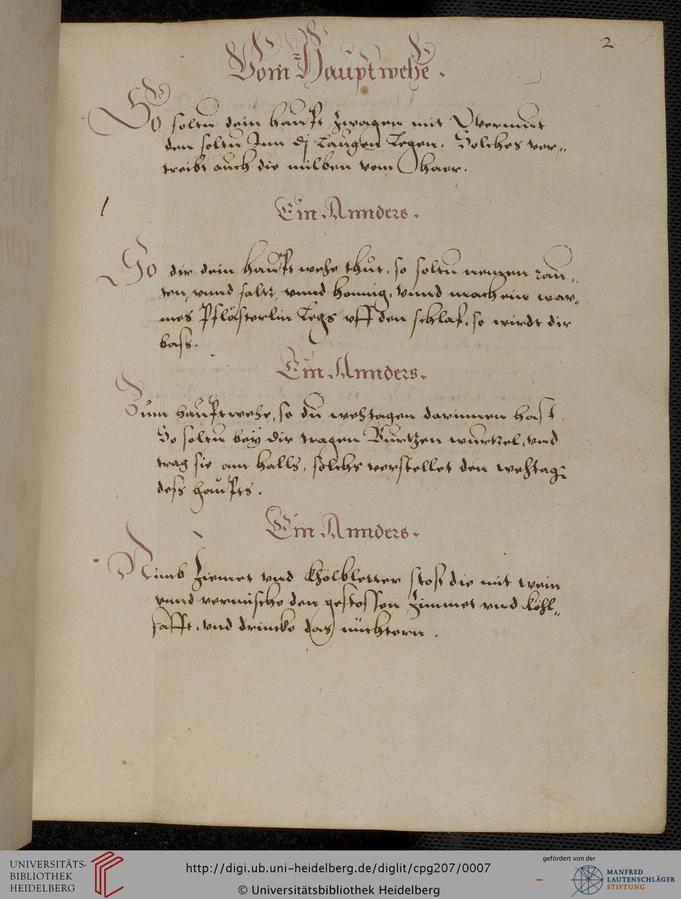 2
Vom Hauptwehe.
So soltu dein haupt zwagen mit Wermut
den soltu Inn die Laugen Legen. Solches ver„
treibt auch die milben vom haar.
Ein Annders.
So dir dein haupt wehe thut, so soltu nemen rau„
ten, vnnd saltz, vnnd honnig, vnnd mach ein war„
mes Pflästerlin Legs vff den schlaf, so wirdt dir
bass.
Ein Annders.
Zum hauptwehe, so du wehtagen darinnen hast
So soltu bey dir tragen Wurtzel, vnd
trag sie am halls, solchs verstellet den wehtag
dess haupts.
Ein Annders.
Nimb Ziemet vnd Khölbletter stoss die mit wein
vnnd vermische den gestossen Zimmet vnd Köhl„
safft, vnd drincke das nüchtern.
UNIVERSITÄTS-
BIBLIOTHEK
HEIDELBERG
http://digi.ub.uni-heidelberg.de/diglit/cpg207/0007
© Universitätsbibliothek Heidelberg
gefördert von der
MANFRED
LAUTENSCHLÄGER
STIFTUNG